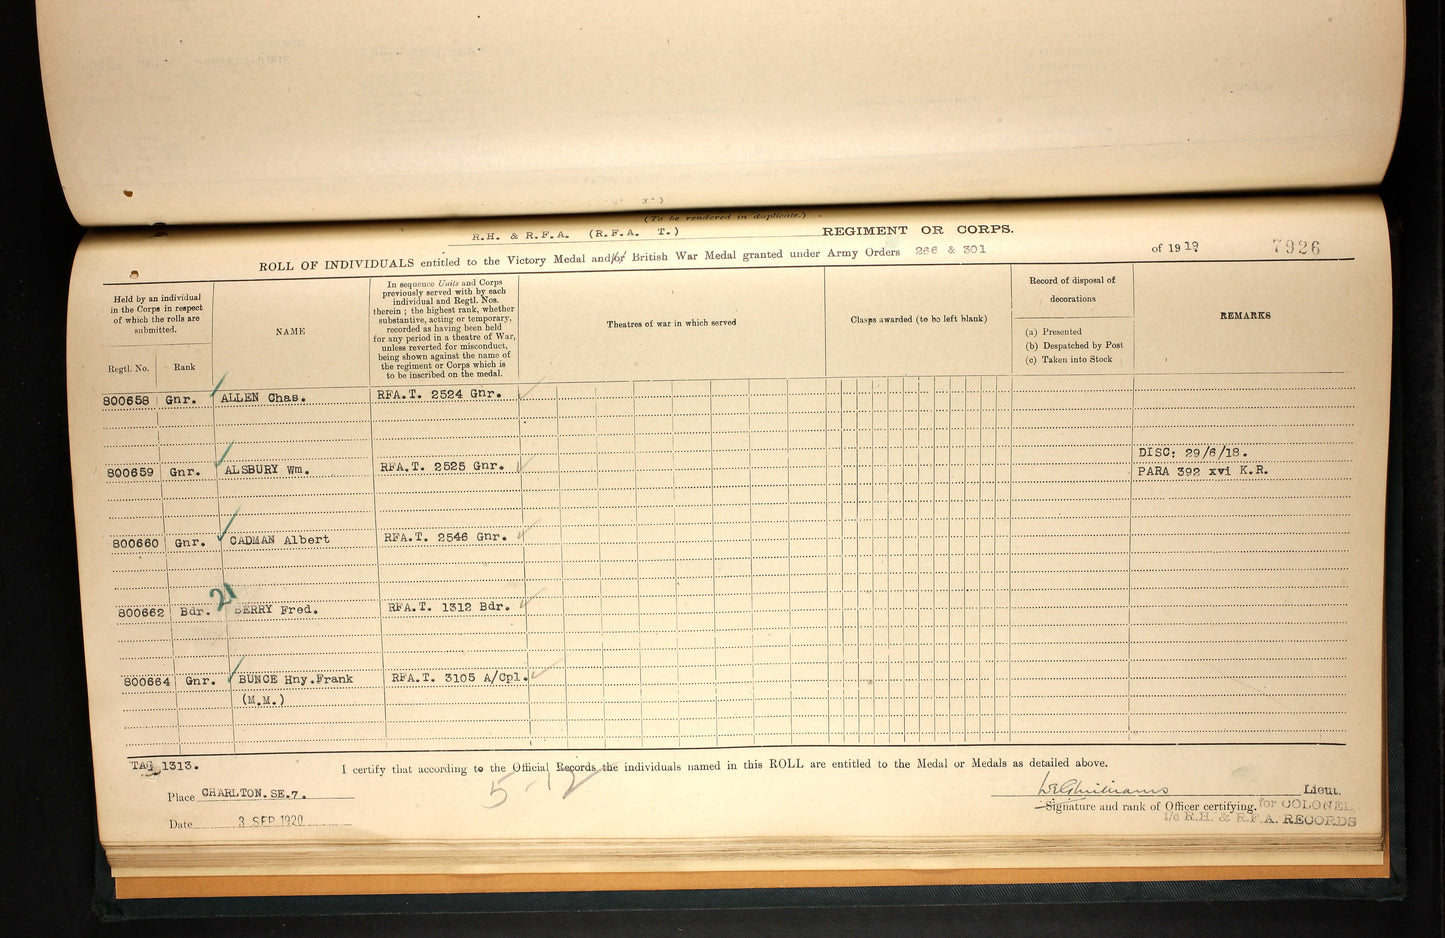 (To be rendered in duplicate.)
R.H. & R.F.A. (R.F.A. T.) REGIMENT OR CORPS.
ROLL OF INDIVIDUALS entitled to the Victory Medal and/or British War Medal granted under Army Orders 266 & 301 of 1919 7926
Held by an individual
in the Corps in respect
of which the rolls are
submitted.
Regtl. No.
Rank
NAME
In sequence Units and Corps
previously served with by each
individual and Regtl. Nos.
therein ; the highest rank, whether
substantive, acting or temporary,
recorded as having been held
for any period in a theatre of War,
unless reverted for misconduct,
being shown against the name of
the regiment or Corps which is
to be inscribed on the medal.
Theatres of war in which served
Clasps awarded (to be left blank)
Record of disposal of
decorations
(a) Presented
(b) Despatched by Post
(c) Taken into Stock
REMARKS
800658 Gnr. ALLEN Chas. RFA.T. 2524 Gnr.
DISC: 29/6/18.
800659 Gnr. ALSBURY Wm. RFA.T. 2525 Gnr. PARA 392 xvi K.R.
800660 Gnr. CADMAN Albert RFA.T. 2546 Gnr.
21
800662 Bdr. BERRY Fred. RFA.T. 1312 Bdr.
800664 Gnr. BUNCE Hny.Frank RFA.T. 3105 A/Cpl.
(M.M.)
TAG 1313.
I certify that according to the Official Records the individuals named in this ROLL are entitled to the Medal or Medals as detailed above.
5-12
Place CHARLTON. SE.7.
Lieut.
Signature and rank of Officer certifying. for COLONEL
i/c R.H. & R.F.A. RECORDS
Date 3 SEP 1920